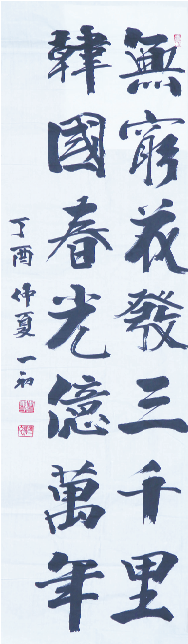 無窮花發三千里
韓國春光億萬年
丁酉仲夏 一初